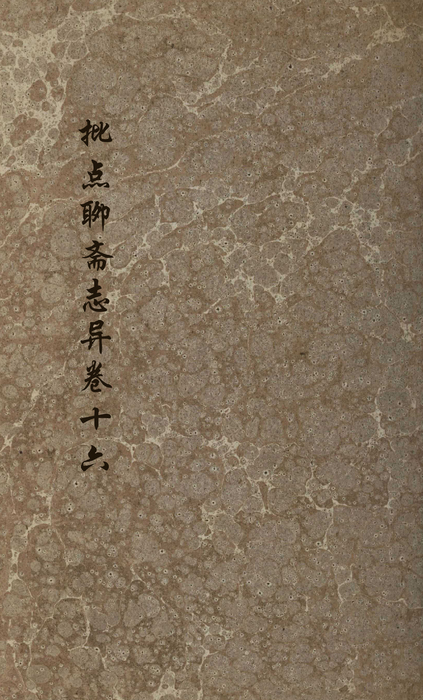 批点聊斋志异卷十六